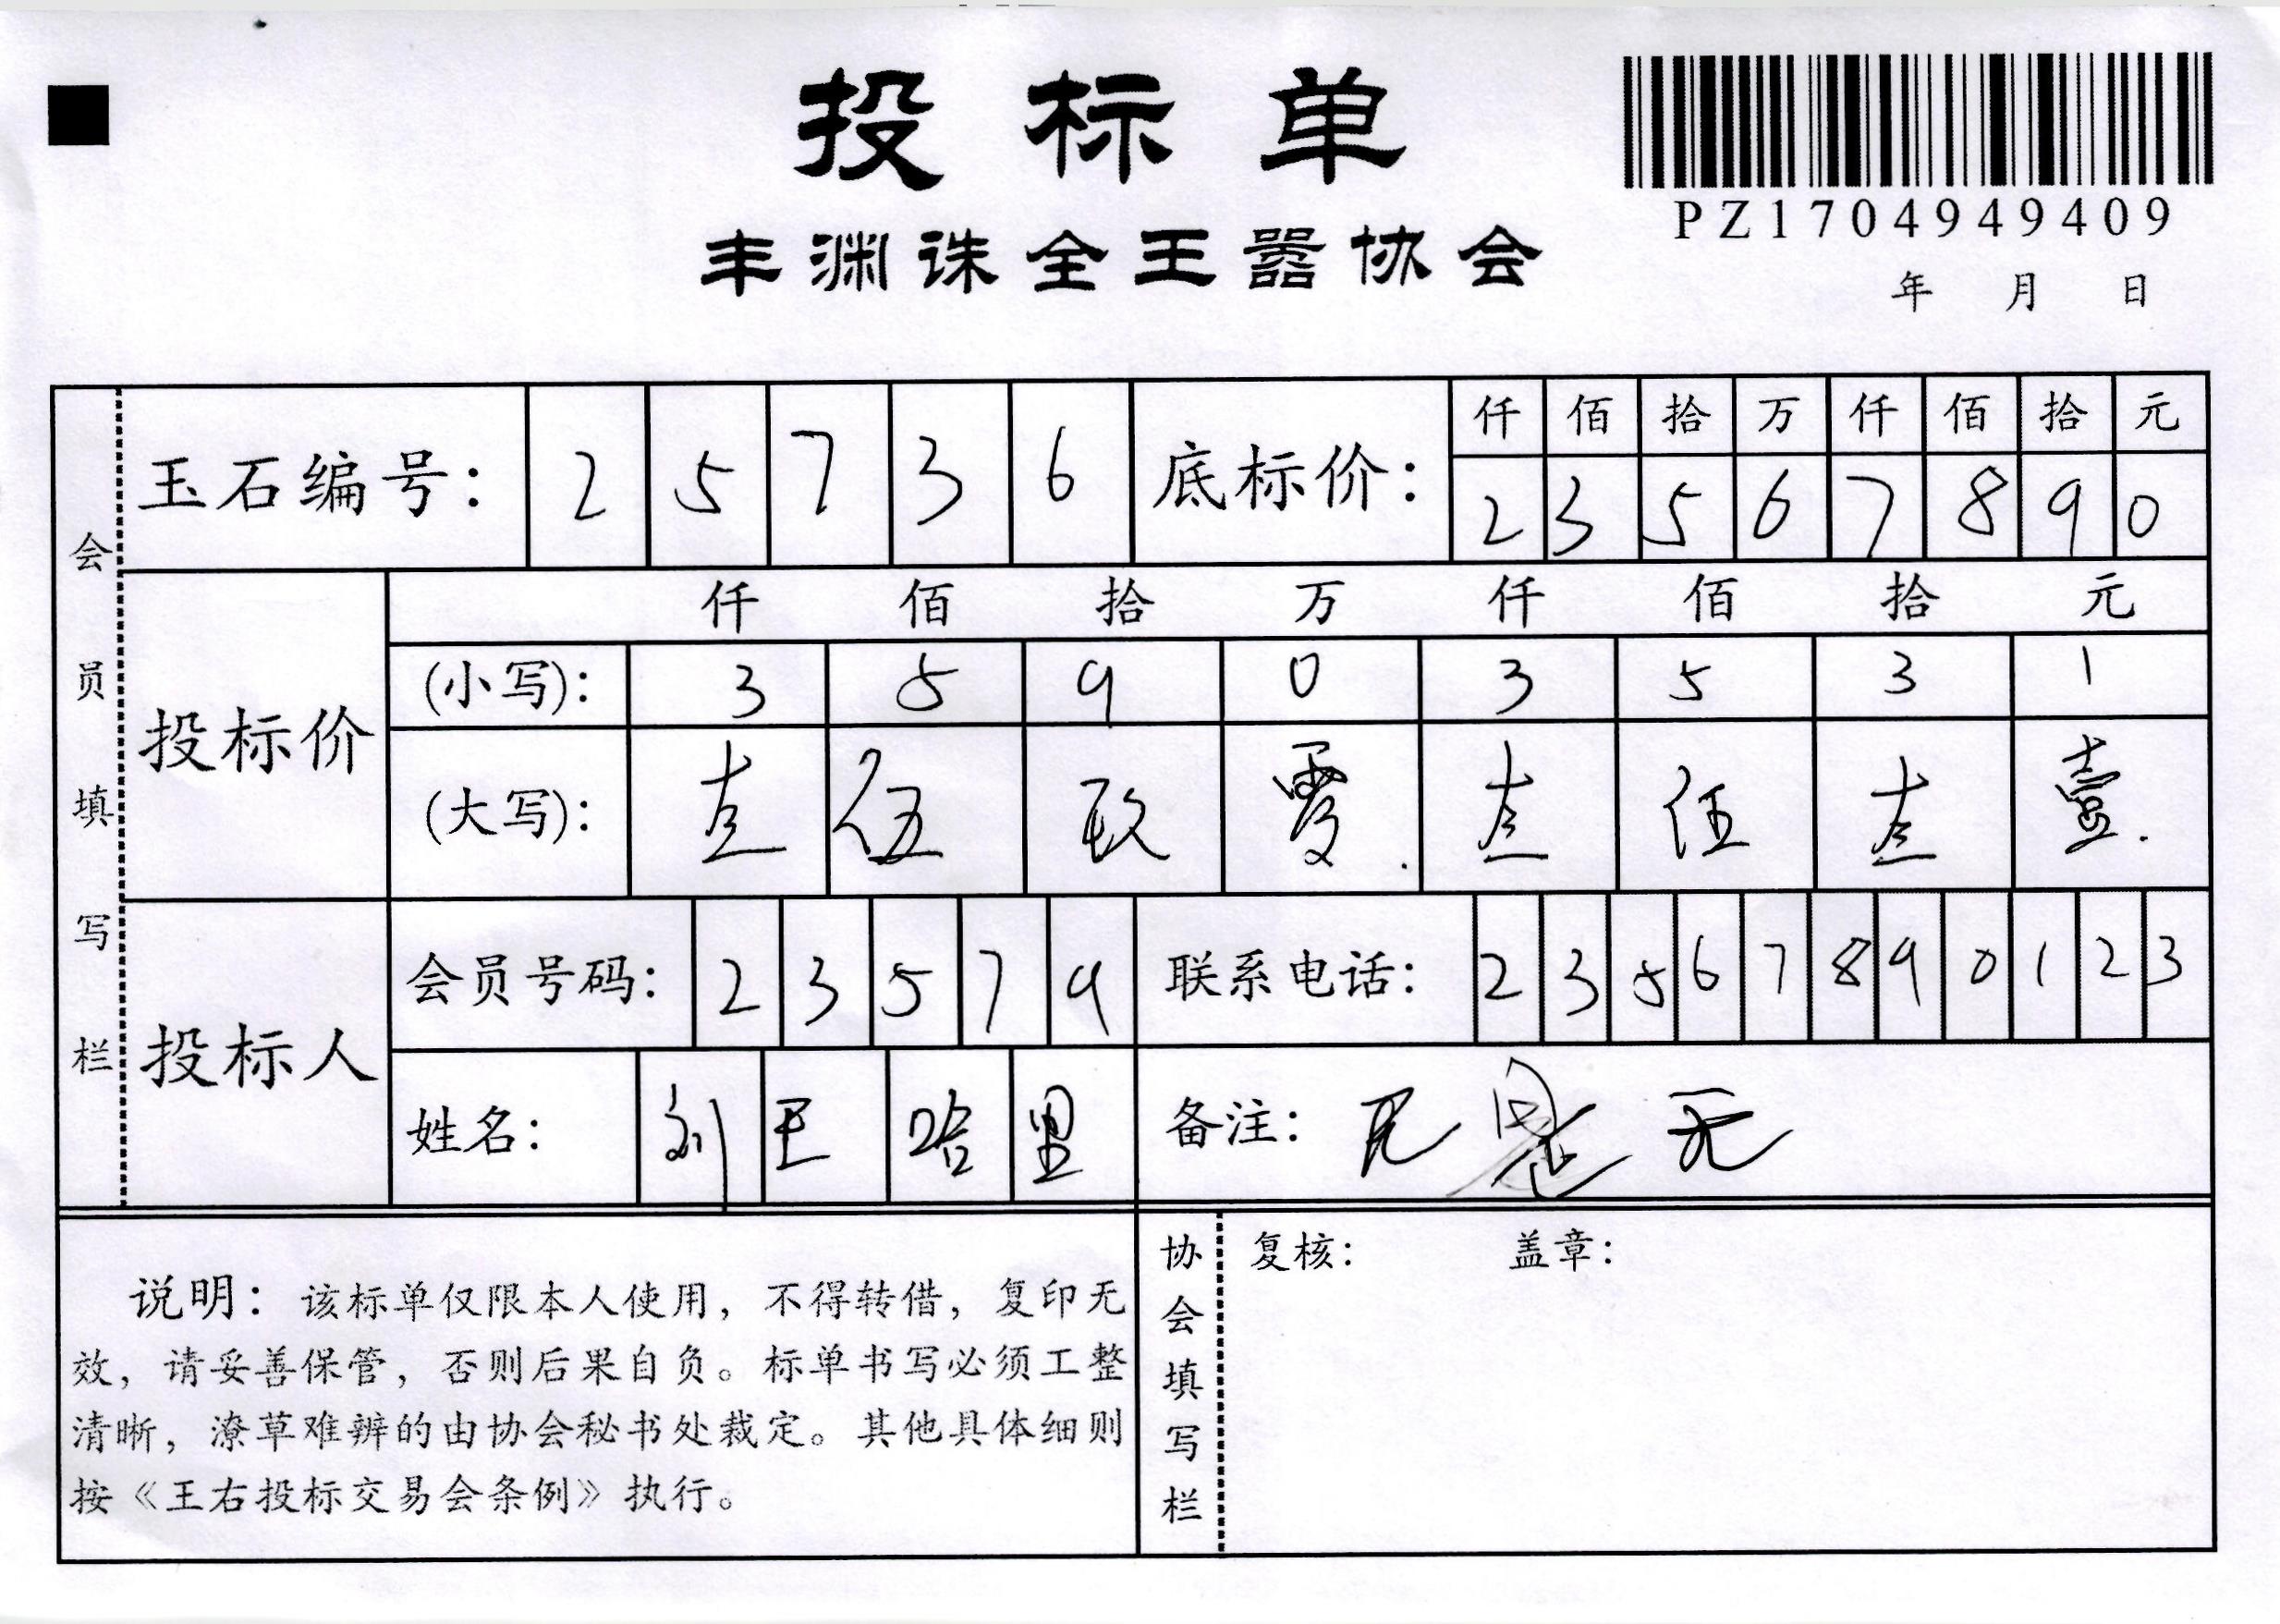 投标单
PZ1704949409
丰渊诛全王嚣协会
年 月 日
会员填写栏
玉石编号: 2 5 7 3 6
底标价:
仟 佰 拾 万 仟 佰 拾 元
2 3 5 6 7 8 9 0
投标价
仟 佰 拾 万 仟 佰 拾 元
(小写): 3 5 9 0 3 5 3 1
(大写): 叁 伍 玖 零 叁 伍 叁 壹
投标人
会员号码: 2 3 5 7 9
联系电话: 2 3 5 6 7 8 9 0 1 2 3
姓名: 刘 王 哈 里
备注: 无
说明: 该标单仅限本人使用, 不得转借, 复印无
效, 请妥善保管, 否则后果自负。标单书写必须工整
清晰, 潦草难辨的由协会秘书处裁定。其他具体细则
按《王右投标交易会条例》执行。
协会填写栏
复核: 盖章: